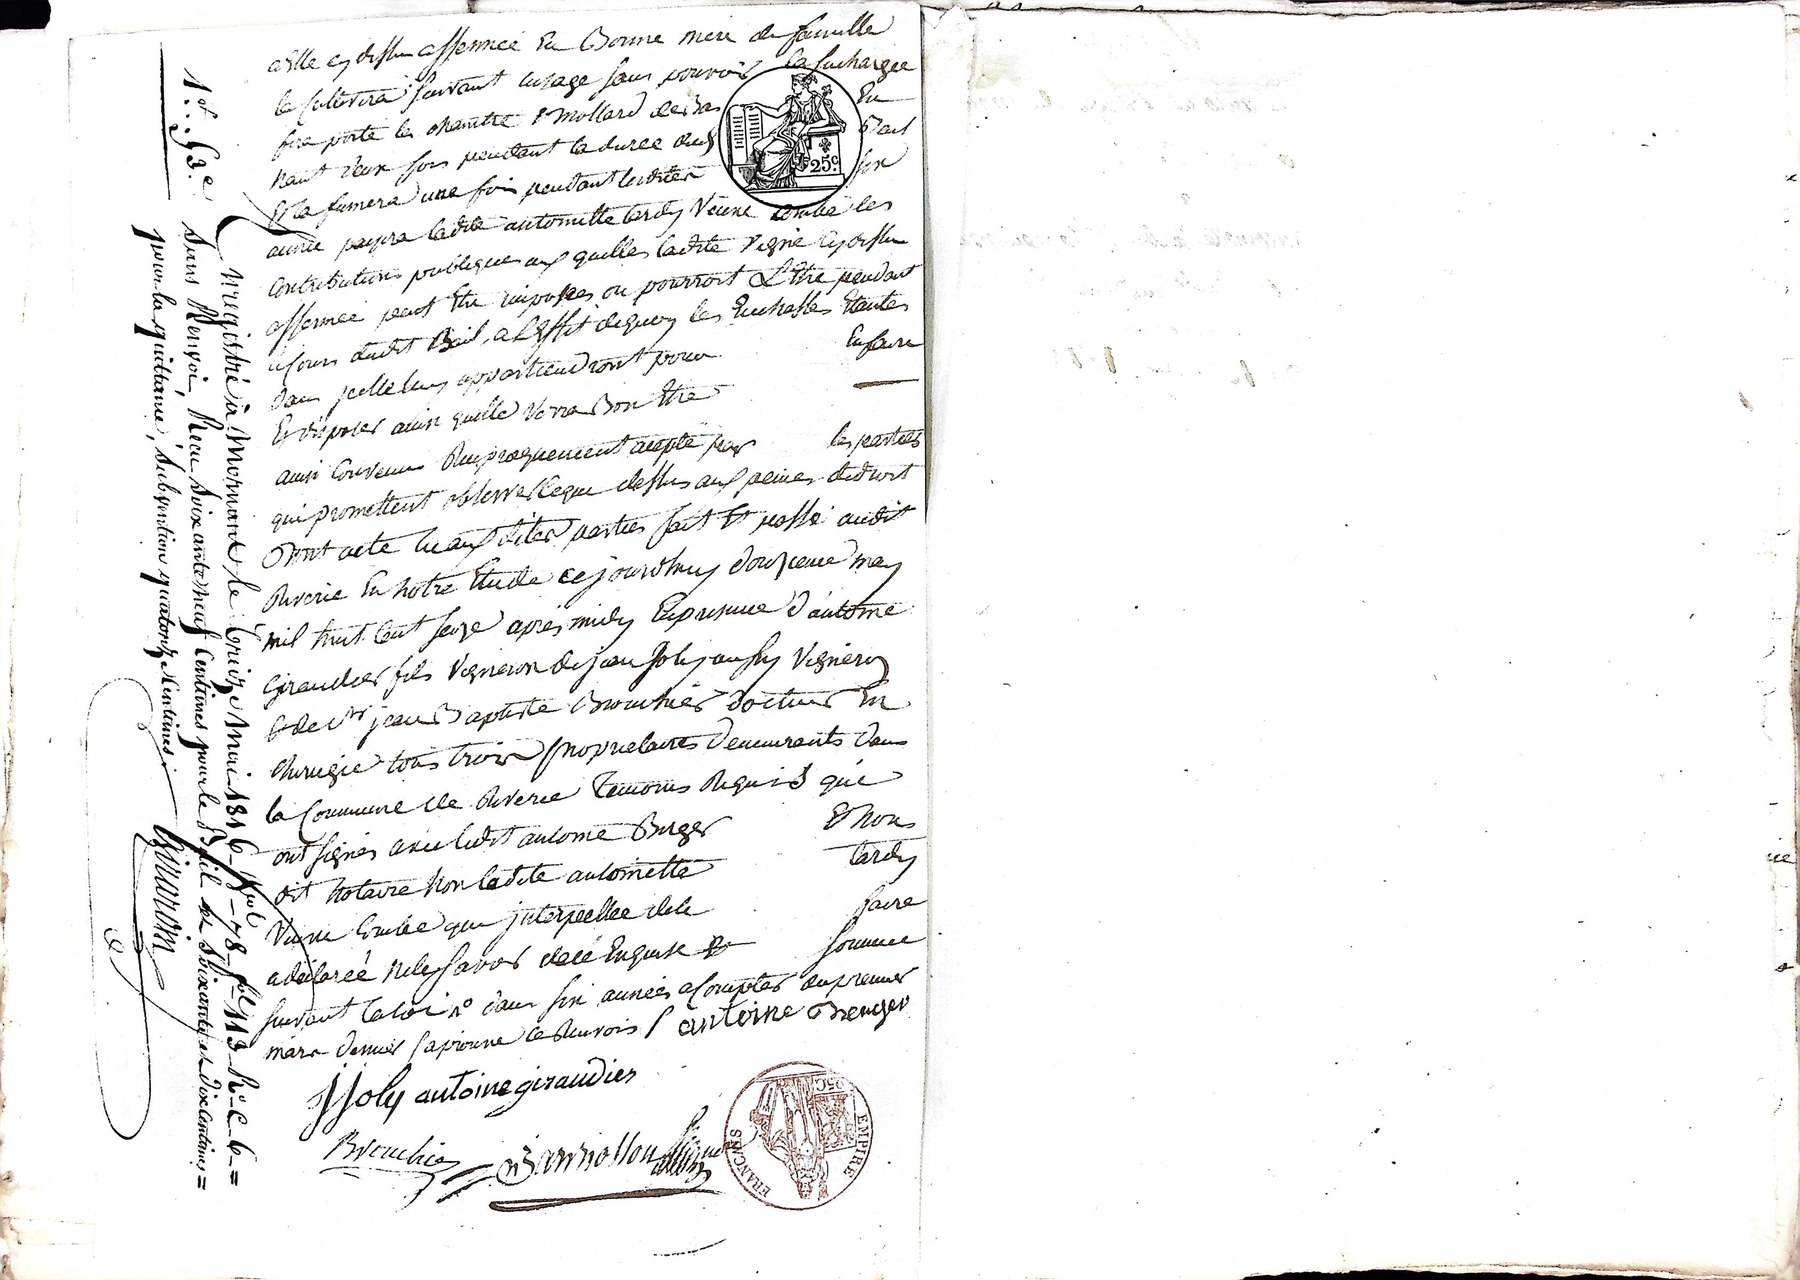 a elle cy dessu affermée en Bonne mere de famille
la cultivera suivant lusage sans pouvoir la surchargée
fra porte la chambre & Mollard de Bas En
haut deux fois pendant la durée dud Bail
Et la fumera une fois pendant lesdites six
année payra ladite antoinette tardy Veuve combe les
Contributions publiques aux quelles ladite Vigne cy dessu
affermée peut Etre imposées ou pourroit L'Etre pendant
le Cours dudit Bail, a L'Effet de quoy les Echallas Etantes
dans jcelle luy appartiendront pour En faire
Et disposer ainsi quelle verra Bon Etre
ainsi Convenu Reciproquement accepté par les parties
qui promettent observer ceque dessus aux peines de droit
Dont acte lu aux dites parties fait Et passé audit
Riverie En notre Etude ce jourdhuy douzieme may
mil huit Cent seize après midy En presence d'antoine
Giraudier fils Vigneron de jean Joly aussy Vigneron
Et de Sr jean Baptiste Brouchier docteur En
chirugie tous trois proprietaires demeurants dans
la Commune de Riverie Temoins Requis qui
ont signés avec ledit antoine Berger Et Nous
dit Notaire Non ladite antoinette tardy
Veuve Combe que jnterpellée dele faire
a déclarée ne le savoir dece Enquise Et sommée
suivant la loi n° dans six années a Compter du premier
mars dernier Captionne ce Renvois / antoine Breuger
J Joly antoine giraudier
Brouchier Jannosson
25c.
EMPIRE FRANÇAIS
25C
1.f 63c.
Enregistré à Mornant le treize mai 1816 Vol. 78 fol. 113 R° C. 6 =
sans Renvoi, Recu soixante neuf Centimes pour le Bail et Soixante et dix Centimes =
pour la quittance, subvention quatorze centimes.